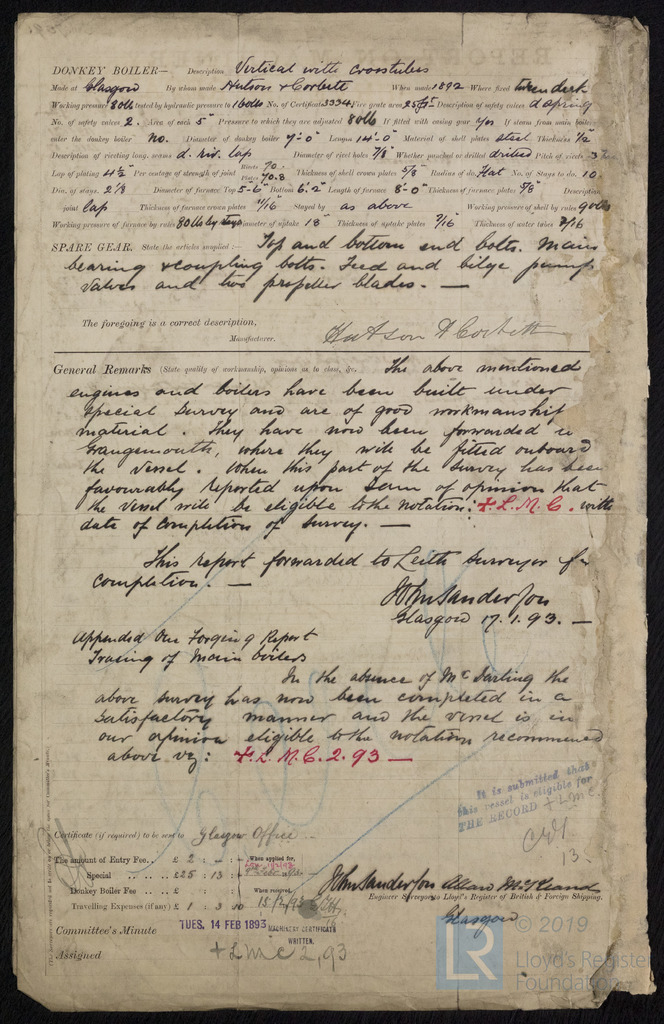 DONKEY BOILER— Description Vertical with crosstubes
Made at Glasgow By whom made Hutson & Corbett When made 1892 Where fixed tween deck
Working pressure 80 lb tested by hydraulic pressure to 160 lbs No. of Certificate 3334 Fire grate area 25 Description of safety valves d spring
No. of safety valves 2. Area of each 5" Pressure to which they are adjusted 80 lb If fitted with casing gear yes If steam from main boilers
enter the donkey boiler no. Diameter of donkey boiler 7'-0" Length 14'-0" Material of shell plates steel Thickness 1/2
Description of riveting long. seams d. riv. lap Diameter of rivet holes 7/8" Whether punched or drilled drilled Pitch of rivets 3
Lap of plating 4 1/2 Per centage of strength of joint Rivets 70. Plates 70.8 Thickness of shell crown plates 5/8 Radius of do. flat No. of Stays to do. 10
Dia. of stays. 2 1/8 Diameter of furnace Top 5'-6" Bottom 6'-2" Length of furnace 8'-0" Thickness of furnace plates 5/8 Description
joint lap Thickness of furnace crown plates 11/16 Stayed by as above Working pressure of shell by rules 90 lbs
Working pressure of furnace by rules 80 lb by Diameter of uptake 18" Thickness of uptake plates 7/16 Thickness of water tubes 7/16
SPARE GEAR. State the articles supplied:— Top and bottom end bolts. Main
bearing & coupling bolts. Feed and bilge pump
valves and two propeller blades. —
The foregoing is a correct description,
Manufacturer. Hutson & Corbett
General Remarks (State quality of workmanship, opinions as to class, &c. The above mentioned
engines and boilers have been built under
special survey and are of good workmanship
material. They have now been forwarded to
Grangemouth, where they will be fitted onboard
the vessel. When this part of the survey has been
favourably reported upon I am of opinion that
the vessel will be eligible to the notation: + L.M.C. with
date of completion of survey. —
This report forwarded to Leith Surveyor for
completion. —
John Sanderson
Glasgow 17.1.93. —
Appended One Forging Report
Tracing of Main boilers
In the absence of Mr Darling the
above survey has now been completed in a
satisfactory manner and the vessel is in
our opinion eligible to the notation recommended
above viz: + L.M.C. 2.93 —
It is submitted that
this vessel is eligible for
THE RECORD + LMC.
13.
Certificate (if required) to be sent to Glasgow Office
The amount of Entry Fee.. £ 2 : - : - When applied for,
Special .. £25 : 13 : -
Donkey Boiler Fee .. £ : : When received,
Travelling Expenses (if any) £ 1 3 10 15/2/93
John Sanderson Allan McKeand
Engineer Surveyors to Lloyd's Register of British & Foreign Shipping.
Glasgow
Committee's Minute TUES. 14 FEB 1893
MACHINERY CERTIFICATE
WRITTEN.
Assigned + LMC 2,93
© 2019
LR
Lloyd's Register
Foundation